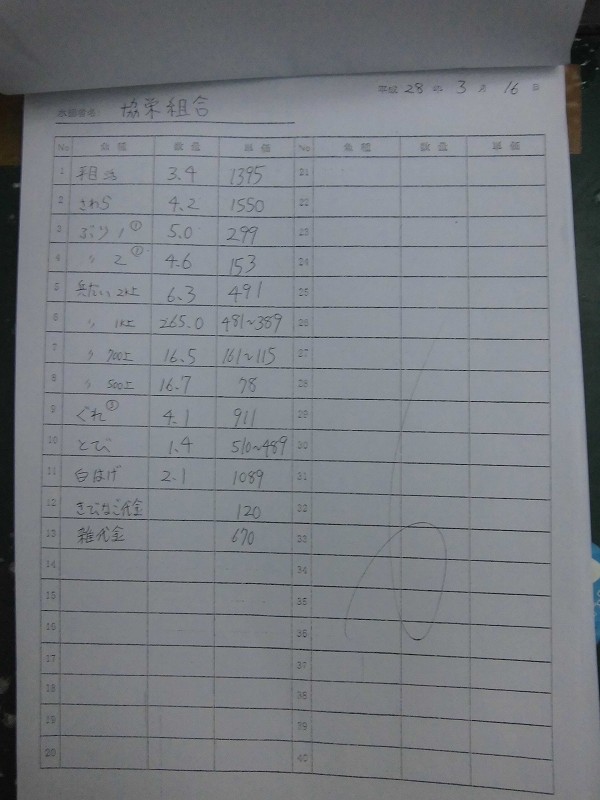 平成 28 年 3 月 16 日
協栄組合
No 魚種 数量 単価 No 魚種 数量 単価
1 3.4 1395 21
2 さわら 4.2 1550 22
3 ぶり1① 5.0 299 23
4 〃 2② 4.6 153 24
5 2k上 6.3 491 25
6 〃 1k上 265.0 481~389 26
7 〃 700上 16.5 161~115 27
8 〃 500上 16.7 78 28
9 ぐれ③ 4.1 911 29
10 とび 1.4 510~489 30
11 白はげ 2.1 1089 31
12 きびなご代金 120 32
13 雑代金 670 33
14 34
15 35
16 36
17 37
18 38
19 39
20 40